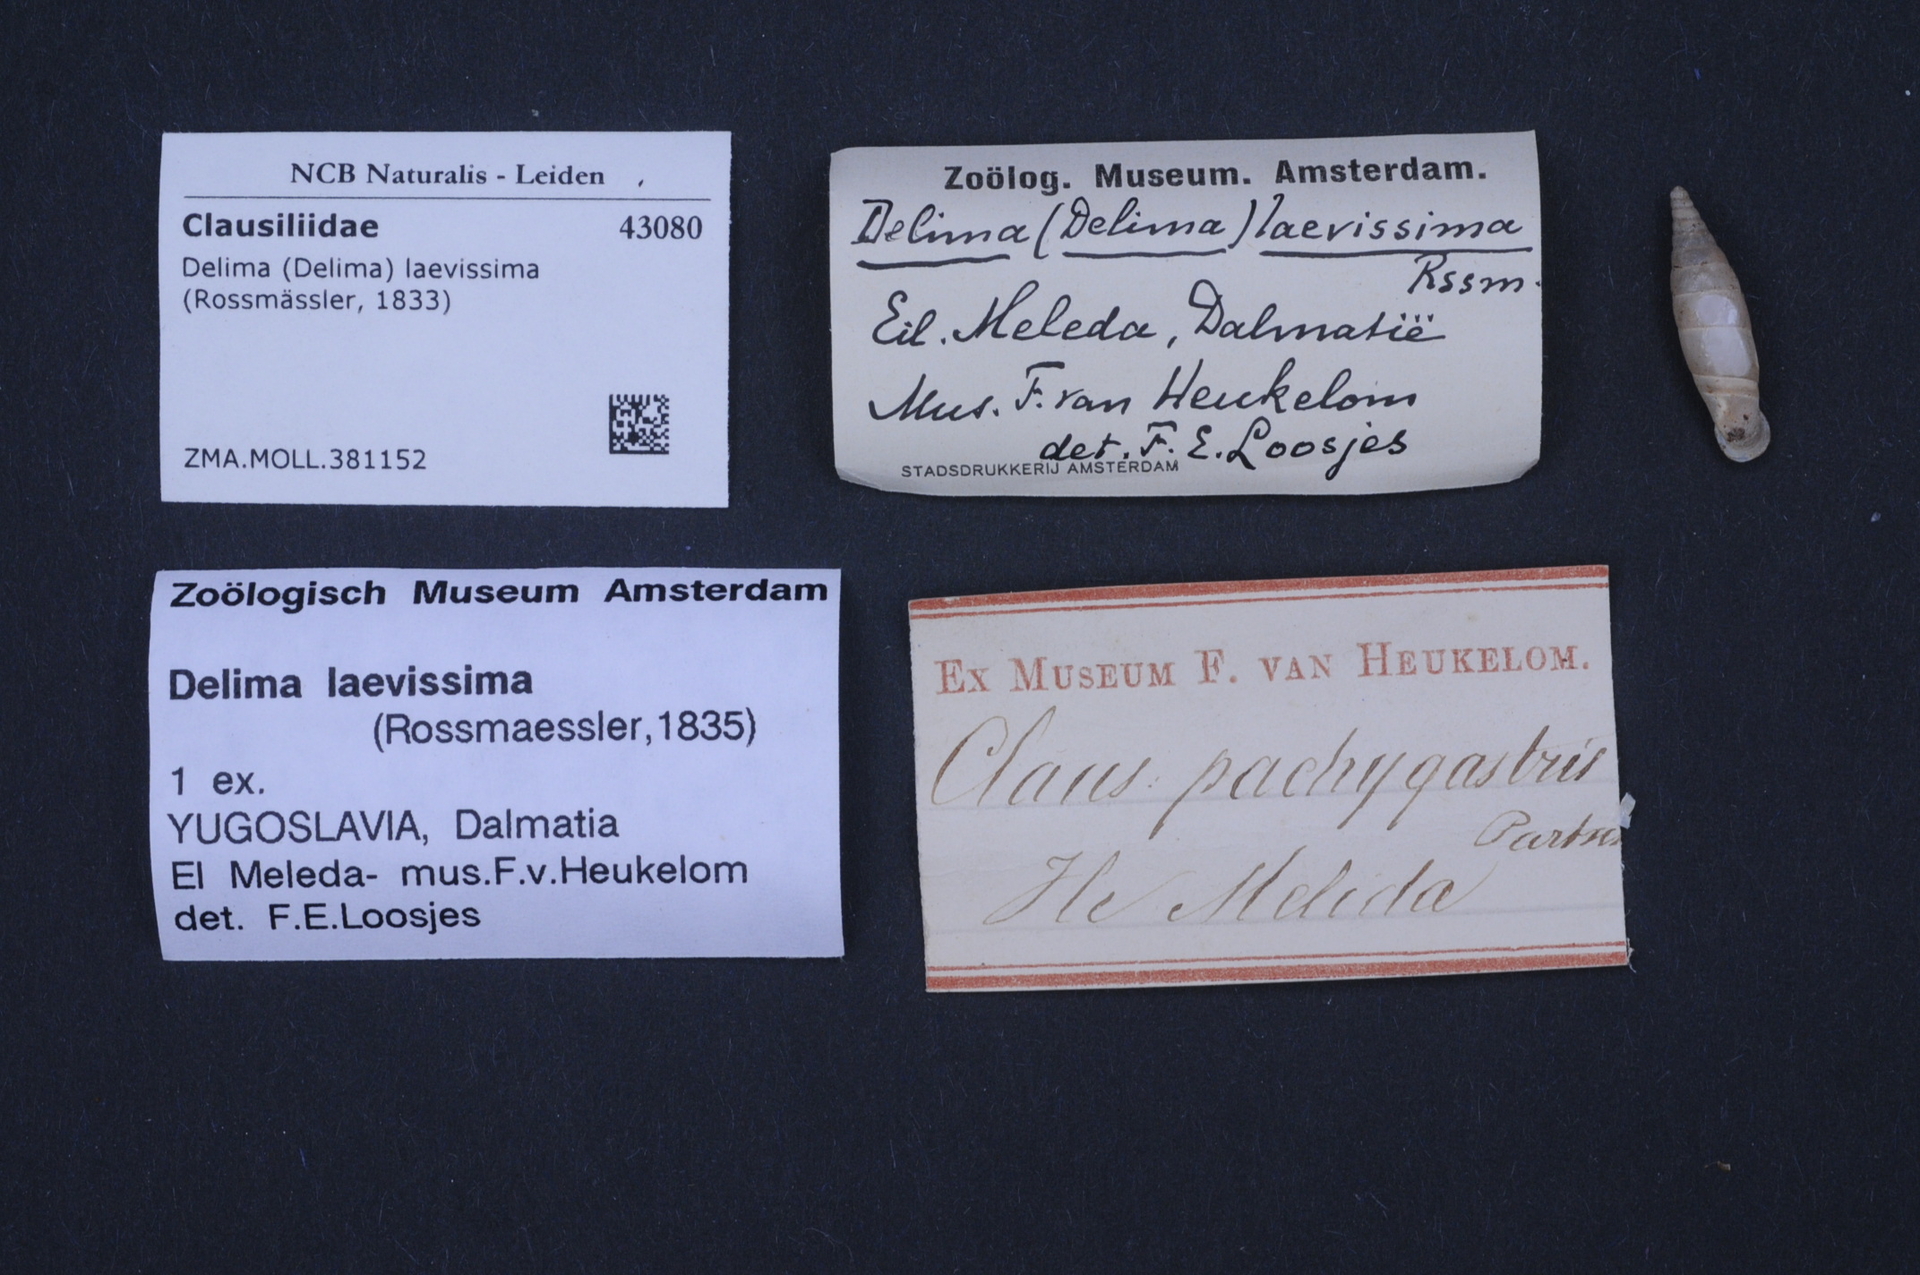 NCB Naturalis - Leiden
Clausiliidae 43080
Delima (Delima) laevissima
(Rossmässler, 1833)
ZMA.MOLL.381152
Zoölog. Museum. Amsterdam.
Delima (Delima) laevissima
Rssm.
Eil. Meleda, Dalmatië
Mus. F. van Heukelom
det. F. E. Loosjes
STADSDRUKKERIJ AMSTERDAM
Zoölogisch Museum Amsterdam
Delima laevissima
(Rossmaessler,1835)
1 ex.
YUGOSLAVIA, Dalmatia
El Meleda- mus.F.v.Heukelom
det. F.E.Loosjes
Ex Museum F. van Heukelom.
Claus: pachygastris
Meleda